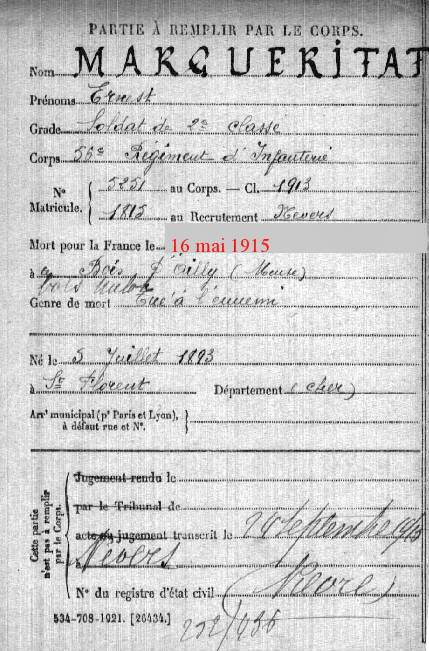 PARTIE À REMPLIR PAR LE CORPS.
Nom MARGUERITAT
Prénoms Ernest
Grade Soldat de 2e classe
Corps 56e Régiment d'Infanterie
N° Matricule. { 5251 au Corps. — Cl. 1913
1815 au Recrutement Nevers
Mort pour la France le 16 mai 1915
à Bois d'Ailly (Meuse)
bois
Genre de mort Tué à l'ennemi
Né le 5 Juillet 1893
à St Florent Département (Cher)
Arrt municipal (pr Paris et Lyon), à défaut rue et N°. }
Cette partie n'est pas à remplir par le Corps.
Jugement rendu le
par le Tribunal de
acte du jugement transcrit le 24 septembre 1915
à Nevers
N° du registre d'état civil (Nièvre)
534-708-1921. [26434.] 252/436